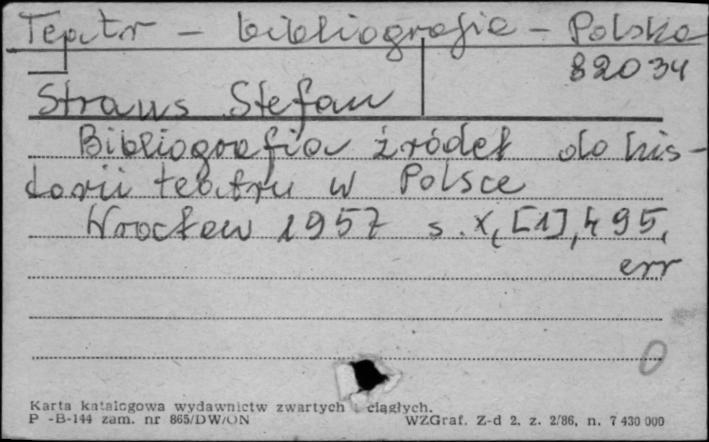 Teatr – bibliografie – Polska
82034
Straus Stefan
Bibliografia źródeł do his-
torii teatru w Polsce
Wrocław 1957 s. X, [1], 495,
err
0
Karta katalogowa wydawnictw zwartych i ciągłych.
P -B-144 zam. nr 865/DW/ON WZGraf. Z-d 2, z. 2/86, n. 7 430 000